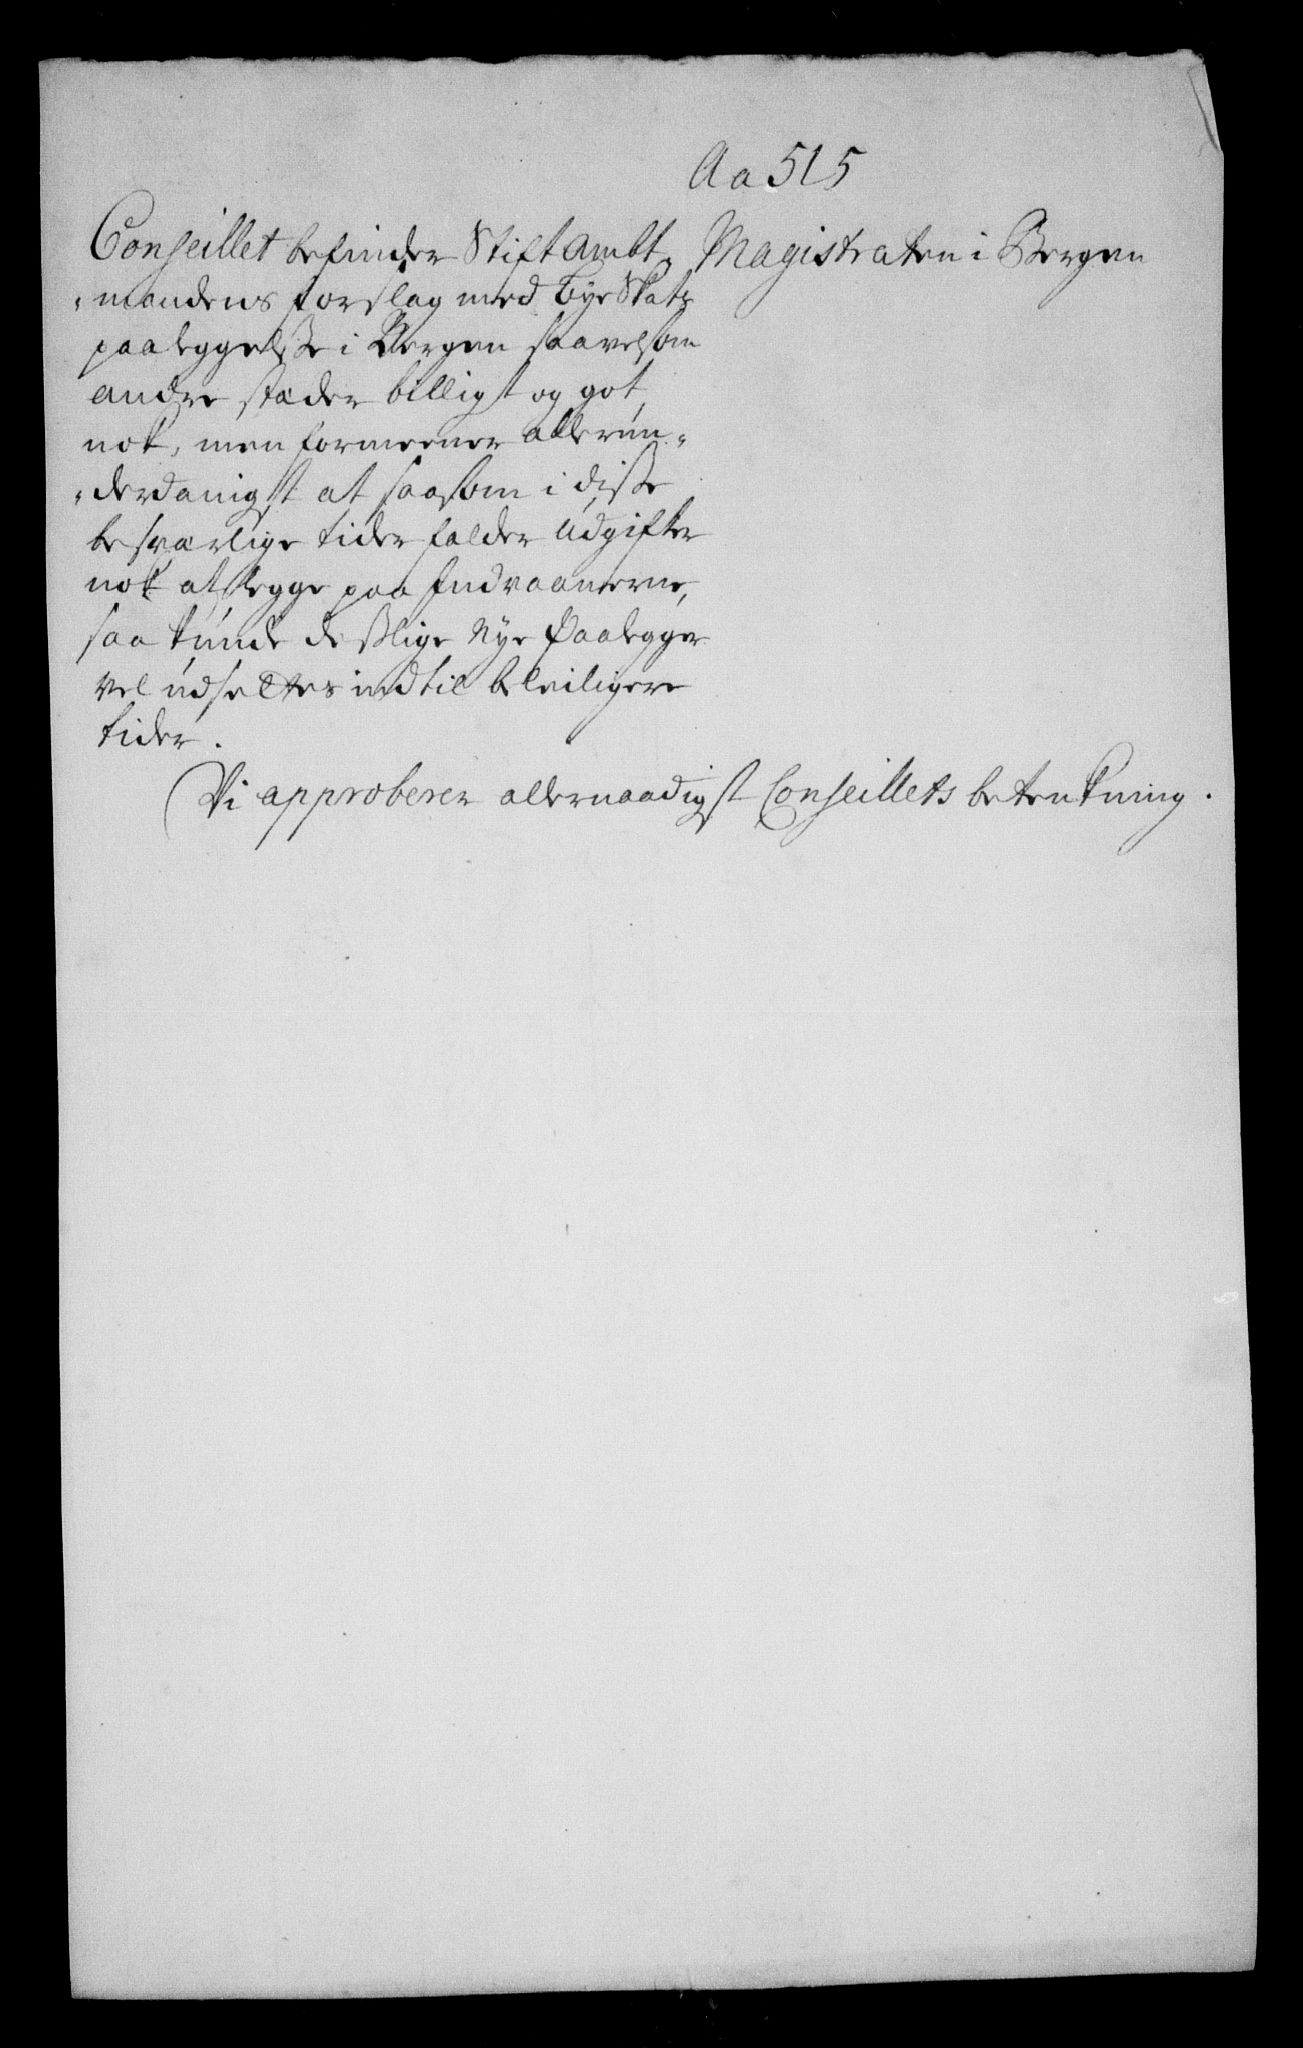 Aa 515
Conseillet befinder Stiftambt-
-mandens forslag med bye Skats
paaleggelsse i Bergen saavelsom
andre stæder billigt og got
nok, men formeener allerun-
-derdanigst at saasom i disse
besværlige tider falder Udgifter
nok at legge paa Indvaanerne,
saa kunde desslige Nye Paalegger
vel udsettes indtil beleiligere
tider.
Magistraten i Bergen
Vi approberer allernaadigst Conseillets betenkning.